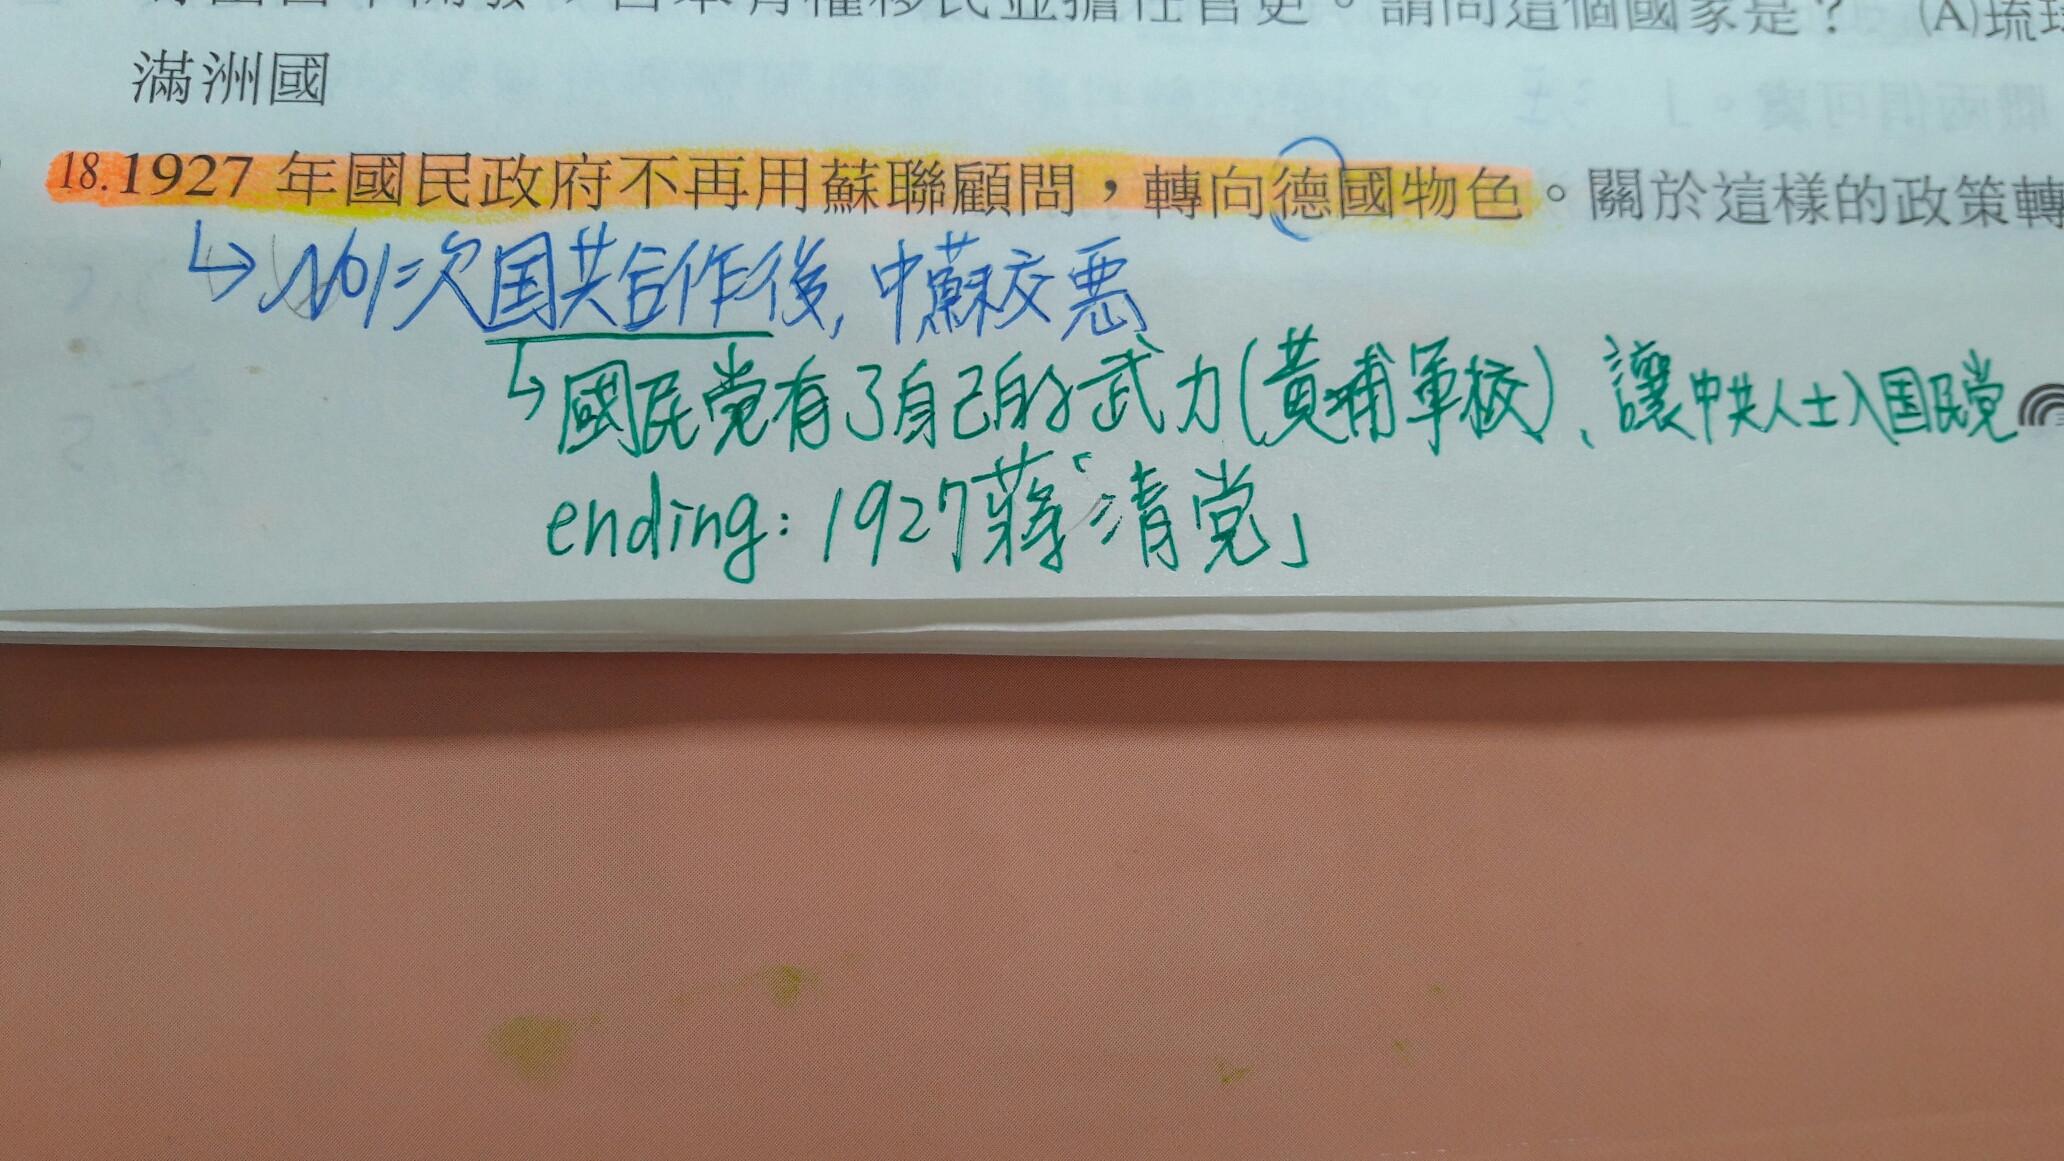 日本有權移民並擔任官吏。請問這個國家是？ (A)琉球
滿洲國
18.1927 年國民政府不再用蘇聯顧問，轉向德國物色。關於這樣的政策轉
次国共合作後, 中蘇交惡
國民党有了自己的武力(黃埔軍校)、讓中共人士入国民党
ending: 1927蔣「清党」